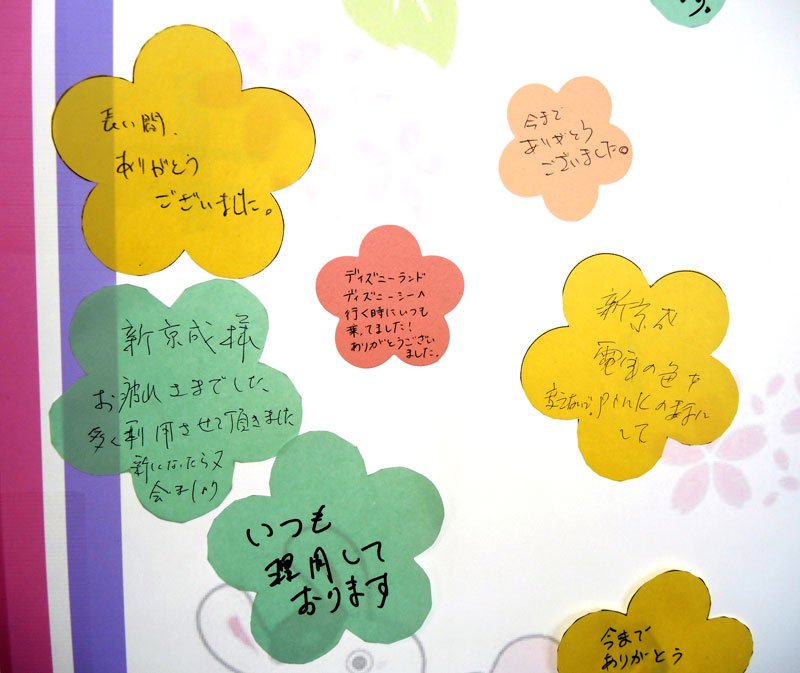 す。
長い間、
ありがとう
ございました。
今まで
ありがとう
ございました。
ディズニーランド
ディズニーシーへ
行く時にいつも
乗ってました!
ありがとうござい
ました。
新京成様
お疲れさまでした
多く利用させて頂きました
新しくなったら又
会ましょう
新京成
電車の色を
変えないで、Pinkのままに
して
いつも
理用して
おります
今まで
ありがとう